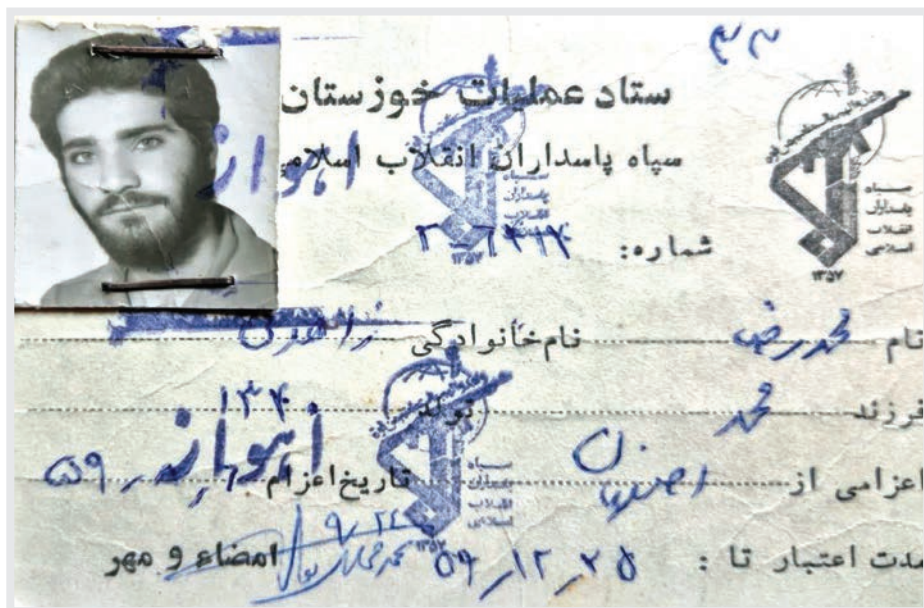 ۳۳
ستاد عملیات خوزستان
سپاه پاسداران انقلاب اسلامی
سپاه پاسداران انقلاب اسلامی
۱۳۵۷
شماره:
نام محمد رضا نام خانوادگی زاهدی
فرزند محمد تولد ۱۳۴۰
اعزامی از اصفهان تاریخ اعزام ۵۹
اهواز
مدت اعتبار تا : ۵۹/۱۲/۲۵ امضاء و مهر